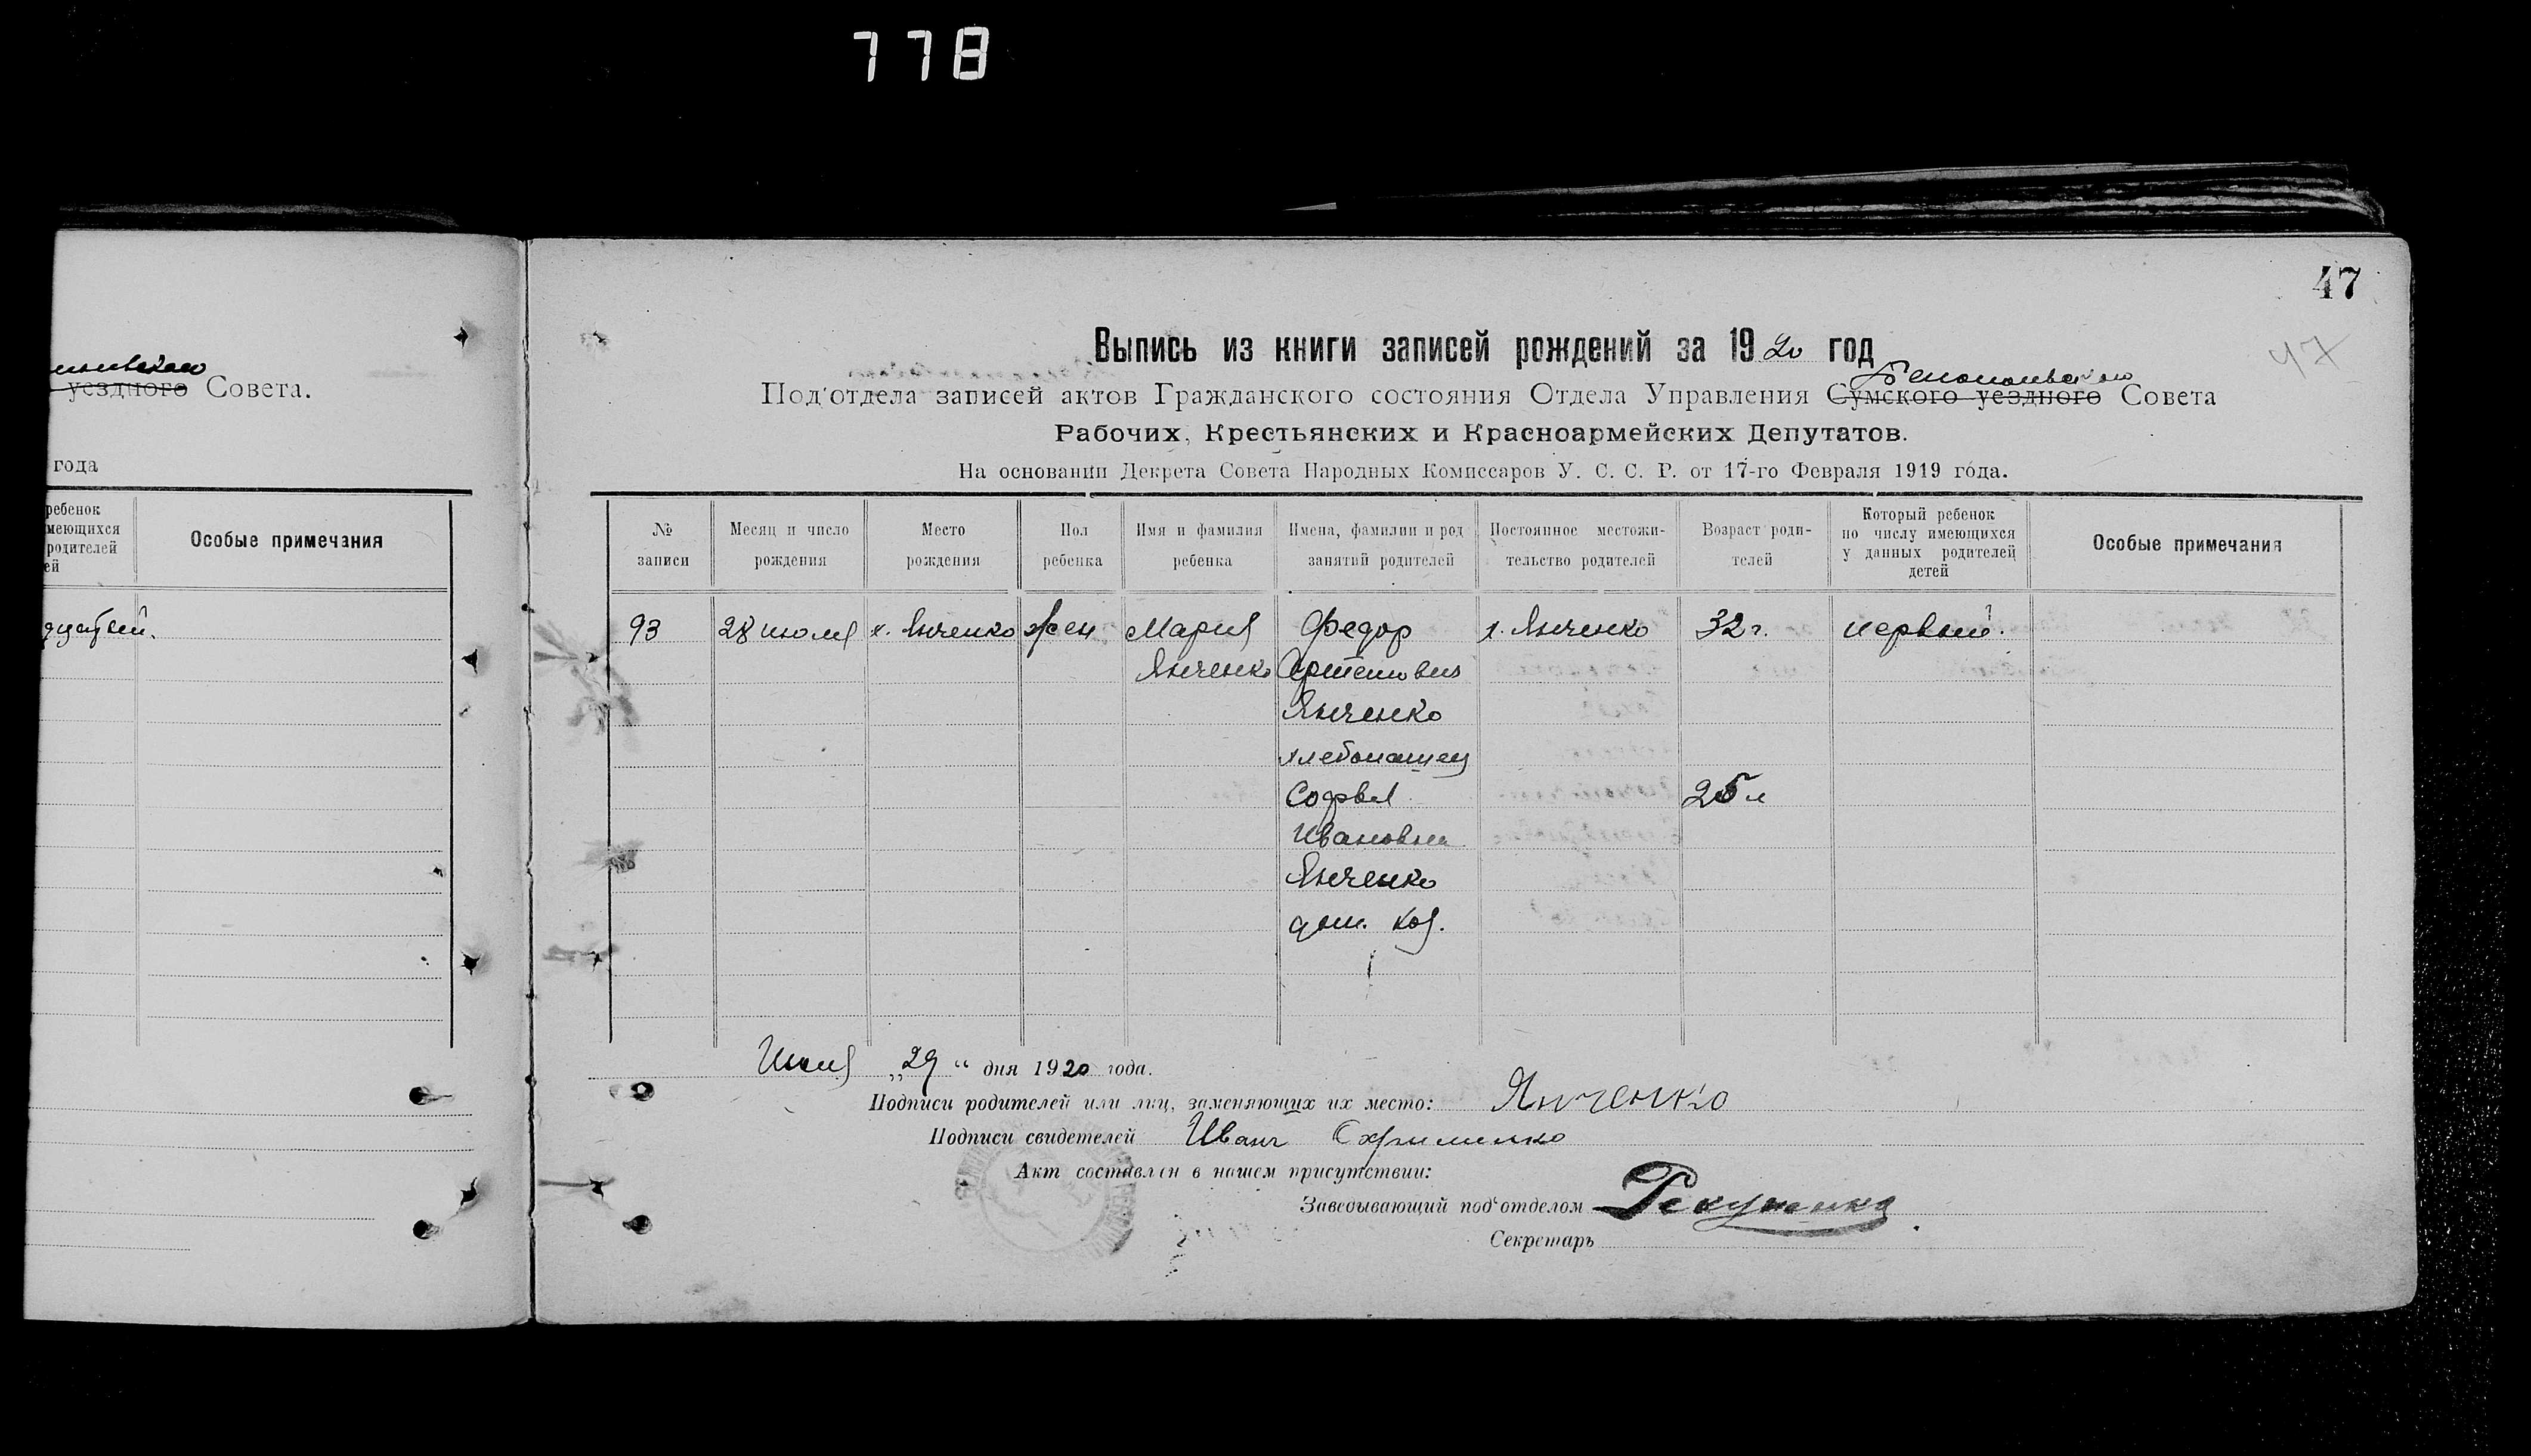 778
47
47
уездного Совета.
года
ребенок
меющихся
родителей
ей
Особые примечания
Выпись из книги записей рождений за 1920 год
Под'отдела записей актов Гражданского состояния Отдела Управления Сумского уездного Совета
Рабочих, Крестьянских и Красноармейских Депутатов.
На основании Декрета Совета Народных Комиссаров У. С. С. Р. от 17-го Февраля 1919 года.
№ записи
Месяц и число рождения
Место рождения
Пол ребенка
Имя и фамилия ребенка
Имена, фамилии и род занятий родителей
Постоянное местожительство родителей
Возраст родителей
Который ребенок по числу имеющихся у данных родителей детей
Особые примечания
93 28 июля х. Янченко жен Мария Федор х. Янченко 32 г. первый.
Янченко Артемович
Янченко
хлебопашец
Софья 25 л
Ивановна
Янченко
дом. хоз.
Июля „29“ дня 1920 года.
Подписи родителей или лиц, заменяющих их место: Янченко
Подписи свидетелей Иван Охрименко
Акт составлен в нашем присутствии:
Заведывающий под'отделом
Секретарь